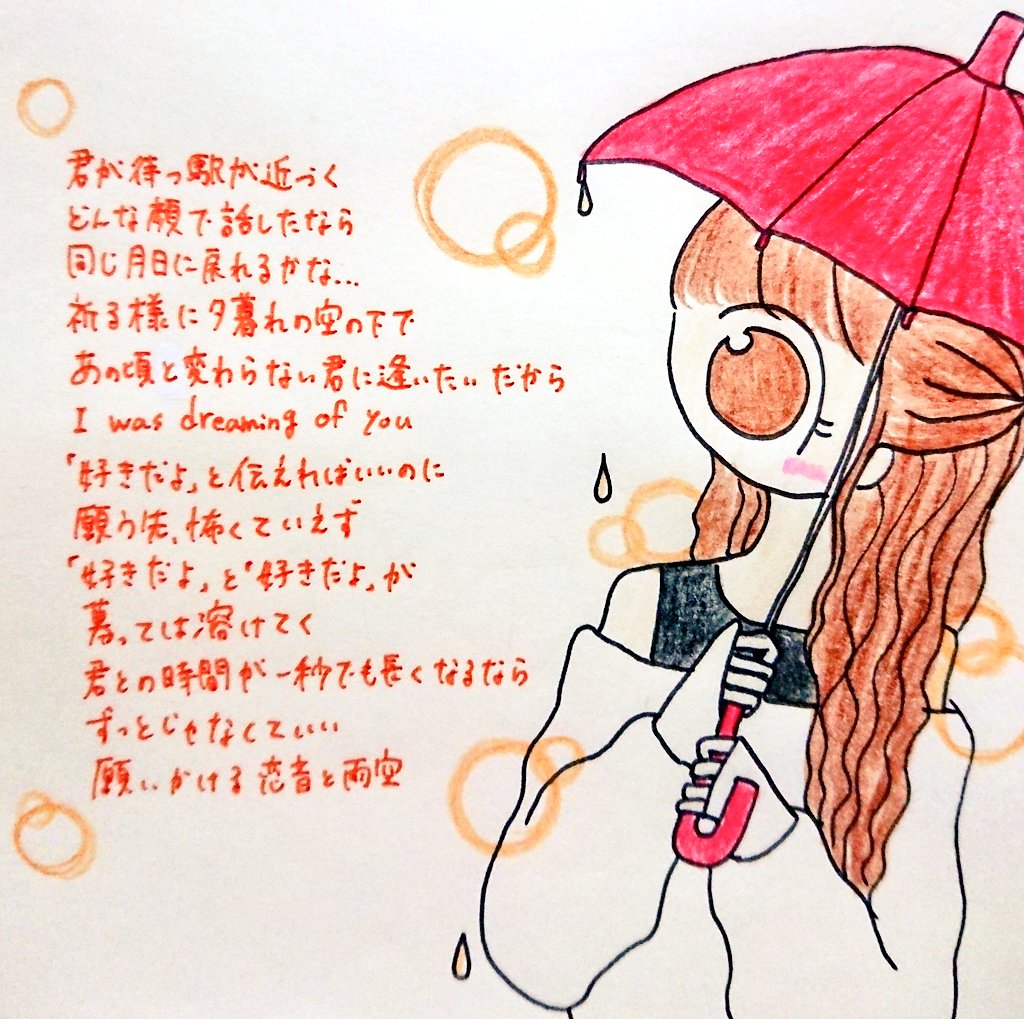 君が待つ駅が近づく
どんな顔で話したなら
同じ月日に戻れるかな...
祈る様に夕暮れの空の下で
あの頃と変わらない君に逢いたいだから
I was dreaming of you
「好きだよ」と伝えればいいのに
願う先、怖くていえず
「好きだよ」と「好きだよ」が
募っては溶けてく
君との時間が一秒でも長くなるなら
ずっとじゃなくていい
願いかける恋音と雨空